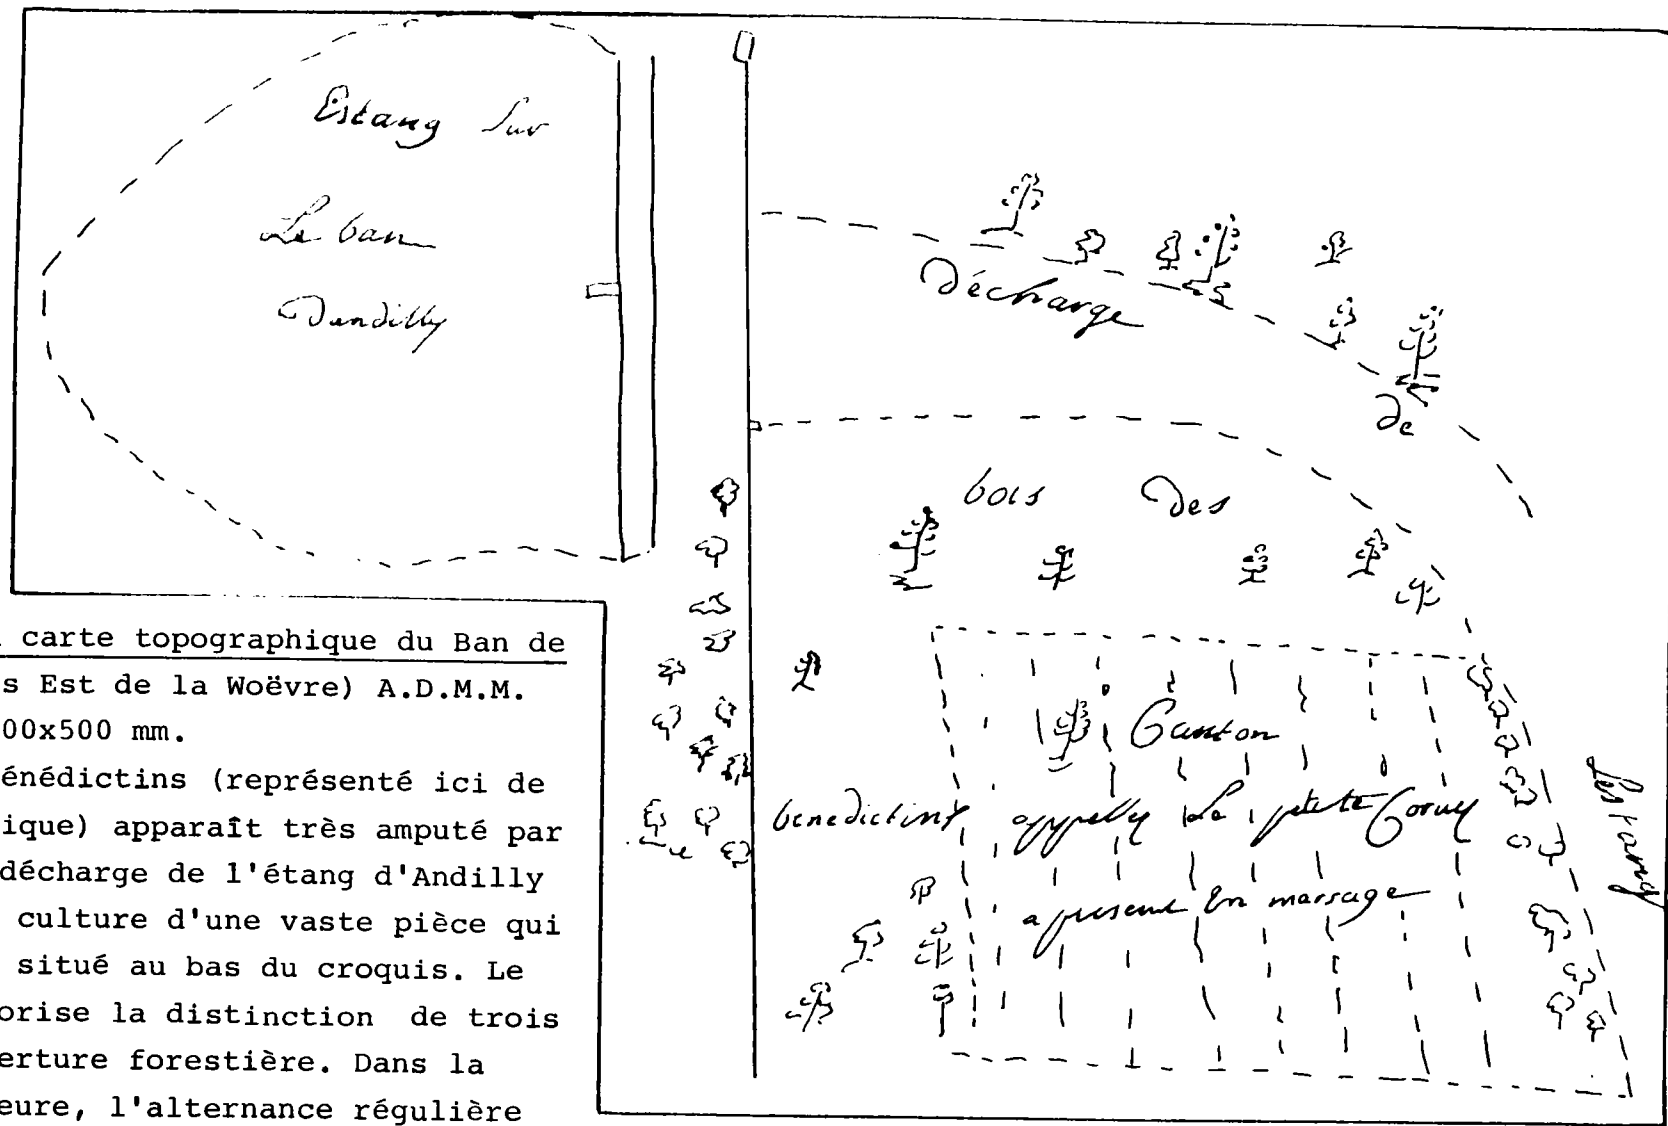 Estang sur
Le ban
Dandilly
décharge
de
Lestang
bois des
benedictins
Canton
appelly La petite Corny
a present En marsage
carte topographique du Ban de
s Est de la Woëvre) A.D.M.M.
00x500 mm.
énédictins (représenté ici de
ique) apparaît très amputé par
décharge de l'étang d'Andilly
culture d'une vaste pièce qui
situé au bas du croquis. Le
orise la distinction de trois
erture forestière. Dans la
eure, l'alternance régulière